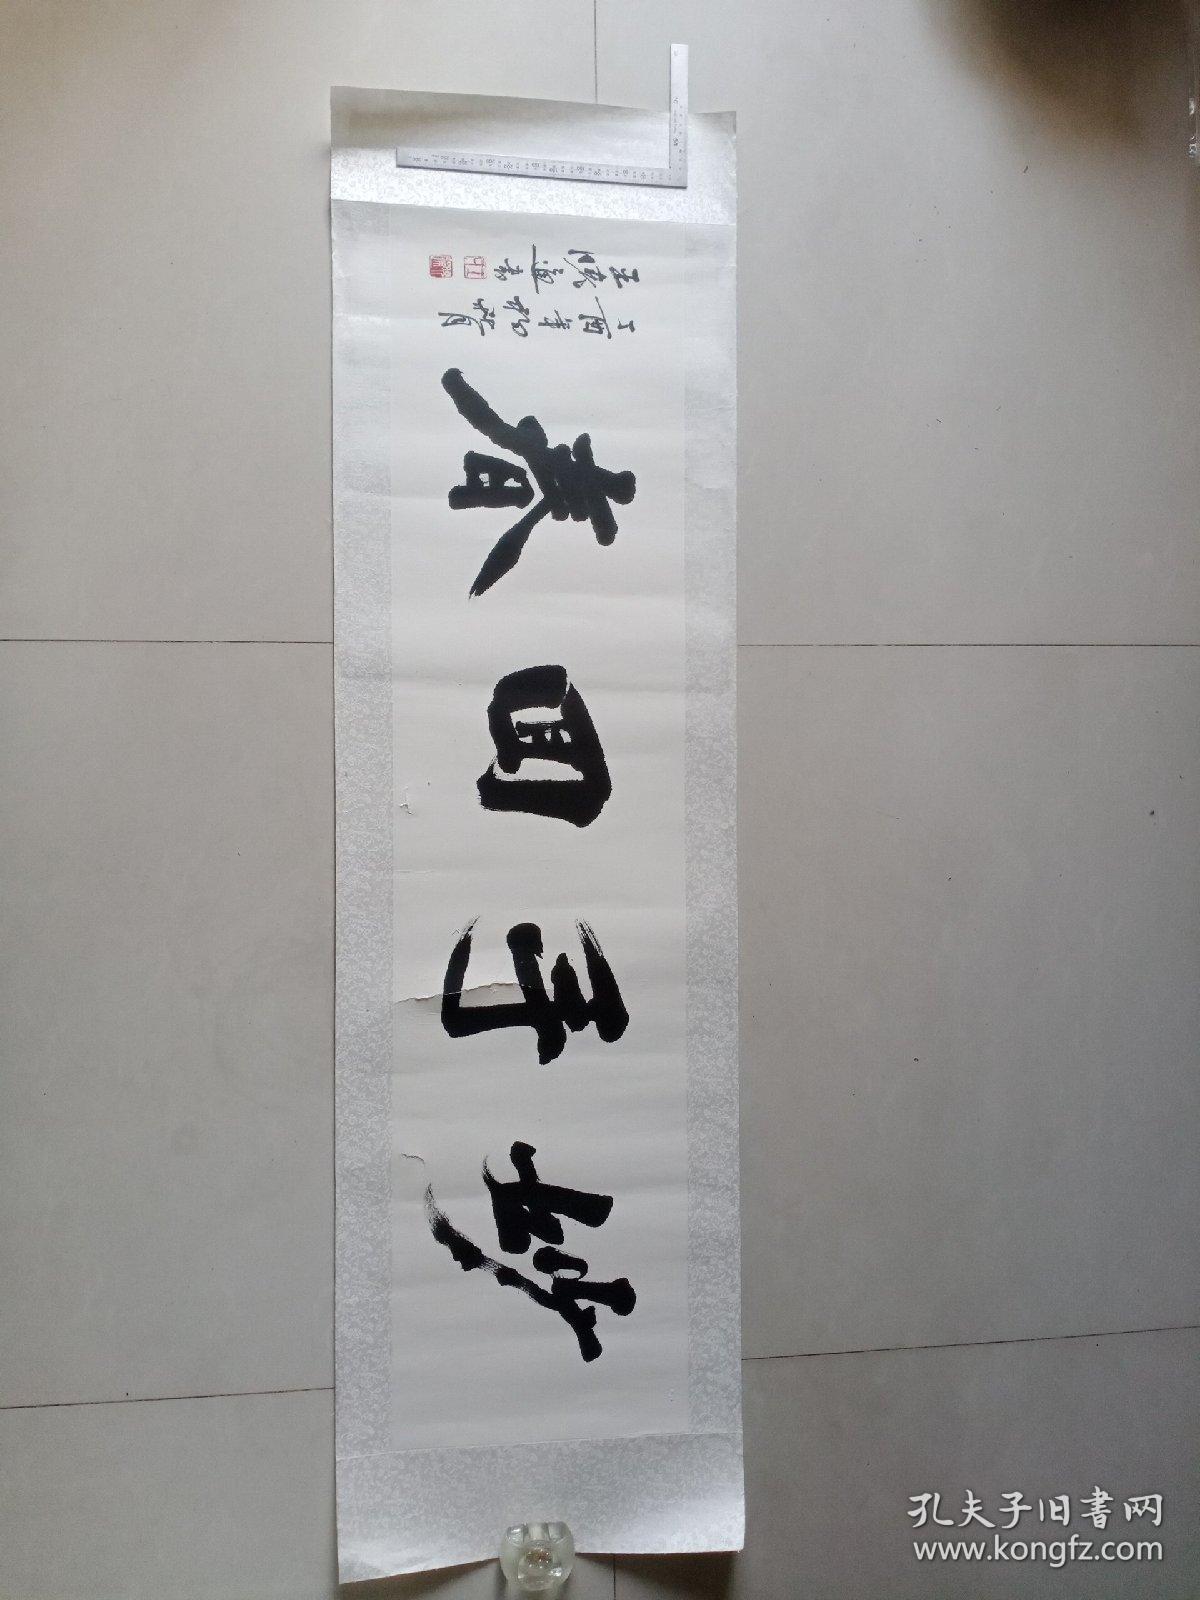 妙手回春
丁酉年初夏月
孔夫子旧书网
www.kongfz.com